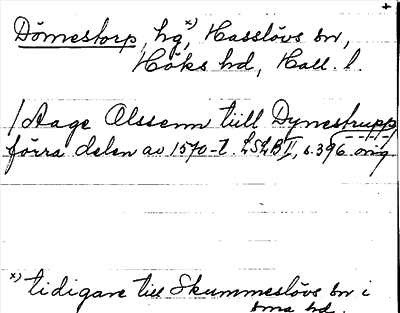 +
Dömestorp, hg, x) Hasslövs sn,
Höks hd, Hall. l.
/Aage Olssenn tiill Dynestrupp
förra delen av 1570-t. LSLB II, s. 396 orig
x) tidigare till Skummeslövs sn i
sma hd.